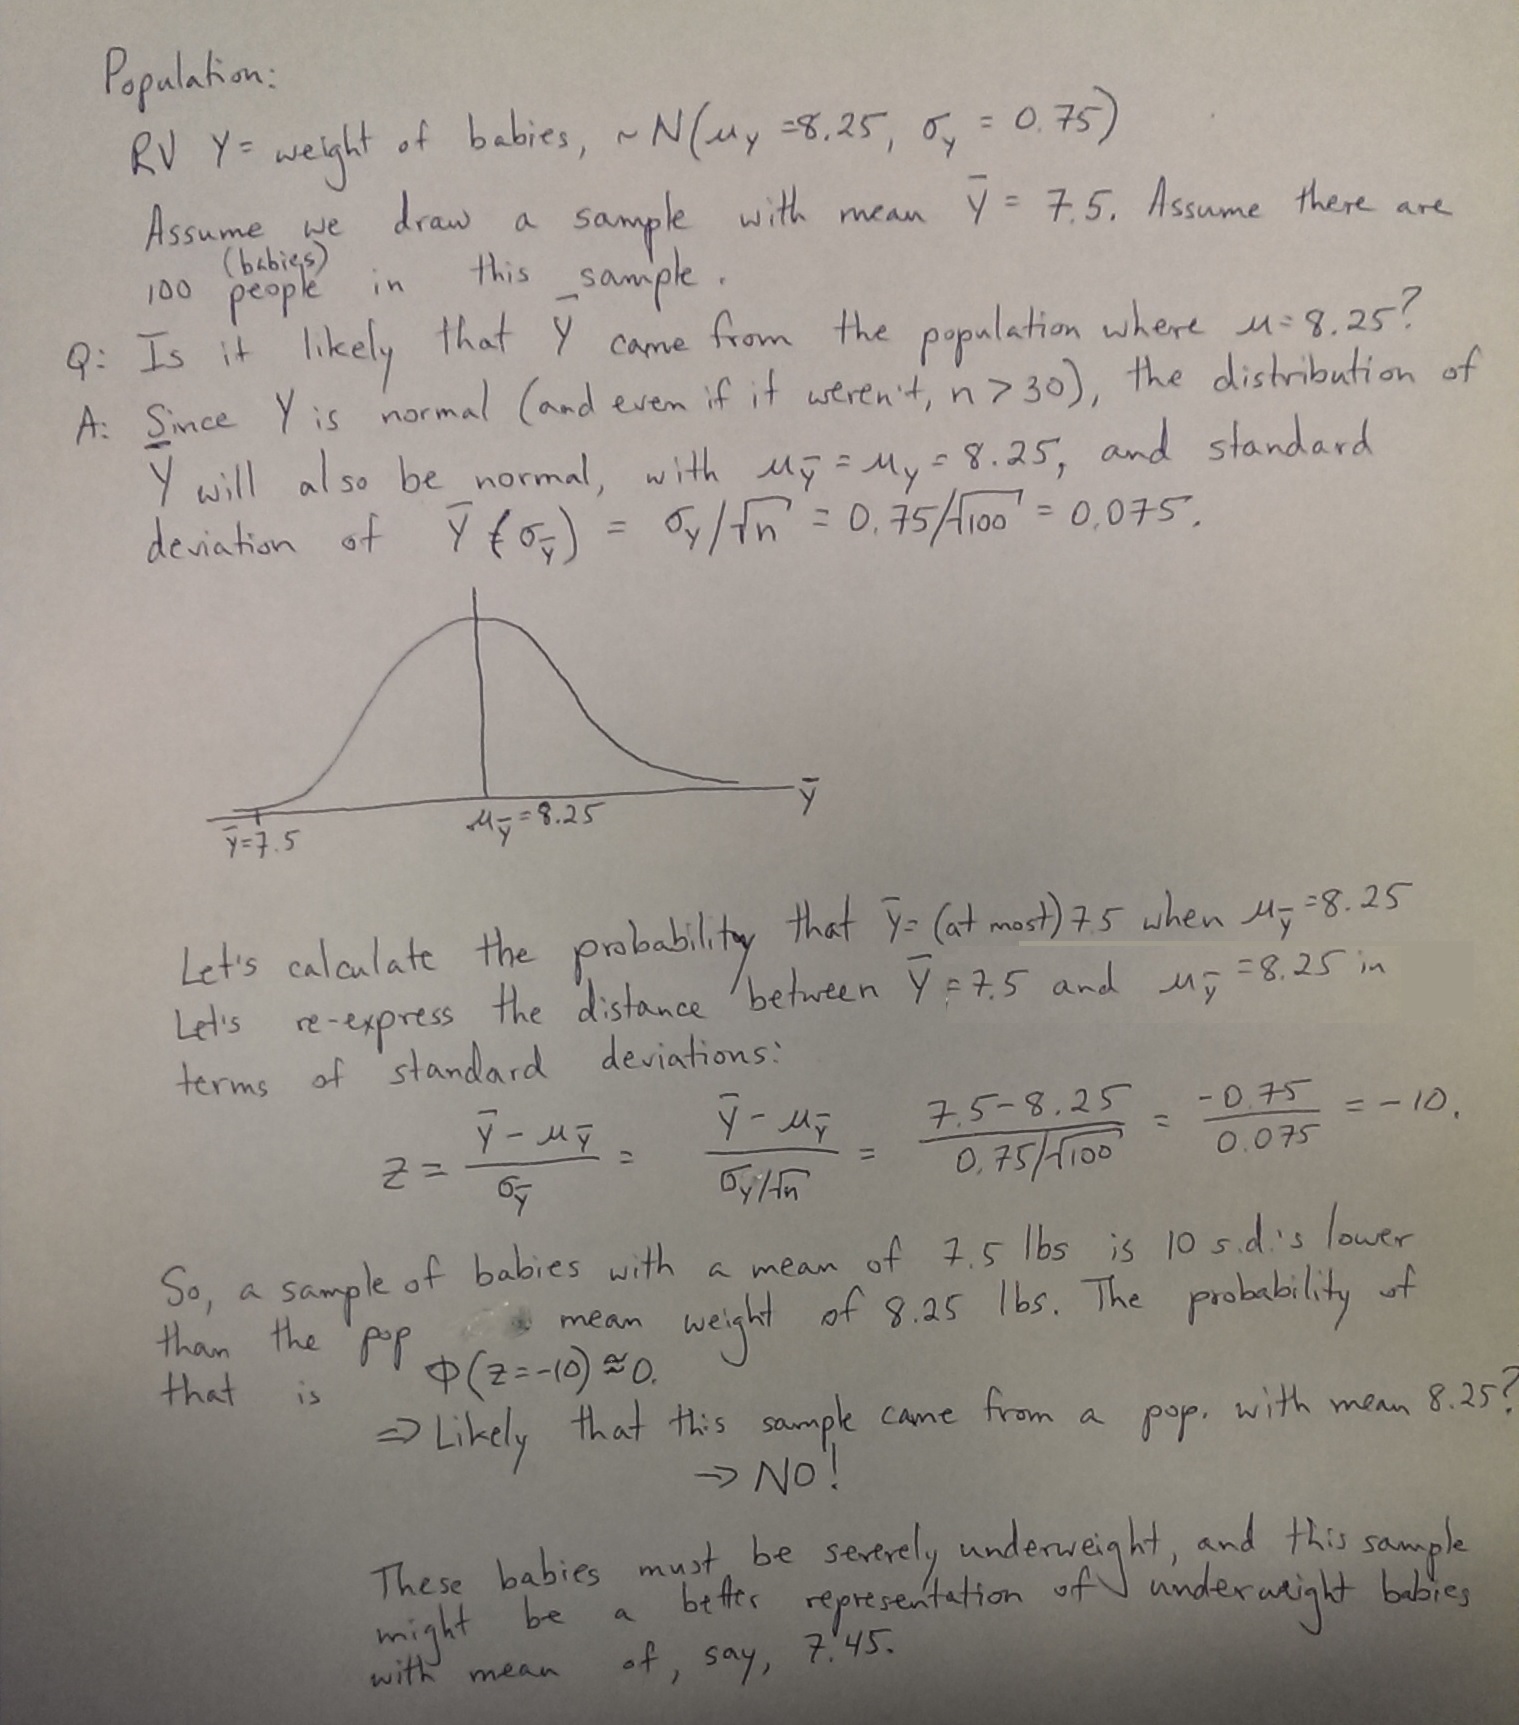 Population:
RV Y = weight of babies, ~ N(μ_Y = 8.25, σ_Y = 0.75)
Assume we draw a sample with mean ȳ = 7.5. Assume there are
(babies)
100 people in this sample.
Q: Is it likely that Ȳ came from the population where μ = 8.25?
A: Since Y is normal (and even if it weren't, n > 30), the distribution of
Ȳ will also be normal, with μ_Ȳ = μ_Y = 8.25, and standard
deviation of Ȳ (σ_Ȳ) = σ_Y/√n = 0.75/√100 = 0.075.
Ȳ
ȳ = 7.5 μ_Ȳ = 8.25
Let's calculate the probability that ȳ = (at most) 7.5 when μ_Ȳ = 8.25
Let's re-express the distance between ȳ = 7.5 and μ_Ȳ = 8.25 in
terms of standard deviations:
z = (ȳ - μ_Ȳ)/σ_Ȳ = (ȳ - μ_Ȳ)/(σ_Y/√n) = (7.5 - 8.25)/(0.75/√100) = -0.75/0.075 = -10.
So, a sample of babies with a mean of 7.5 lbs is 10 s.d.'s lower
than the pop mean weight of 8.25 lbs. The probability of
that is Φ(z = -10) ≈ 0.
⇒ Likely that this sample came from a pop. with mean 8.25?
→ NO!
These babies must be severely underweight, and this sample
might be a better representation of underweight babies
with mean of, say, 7.45.